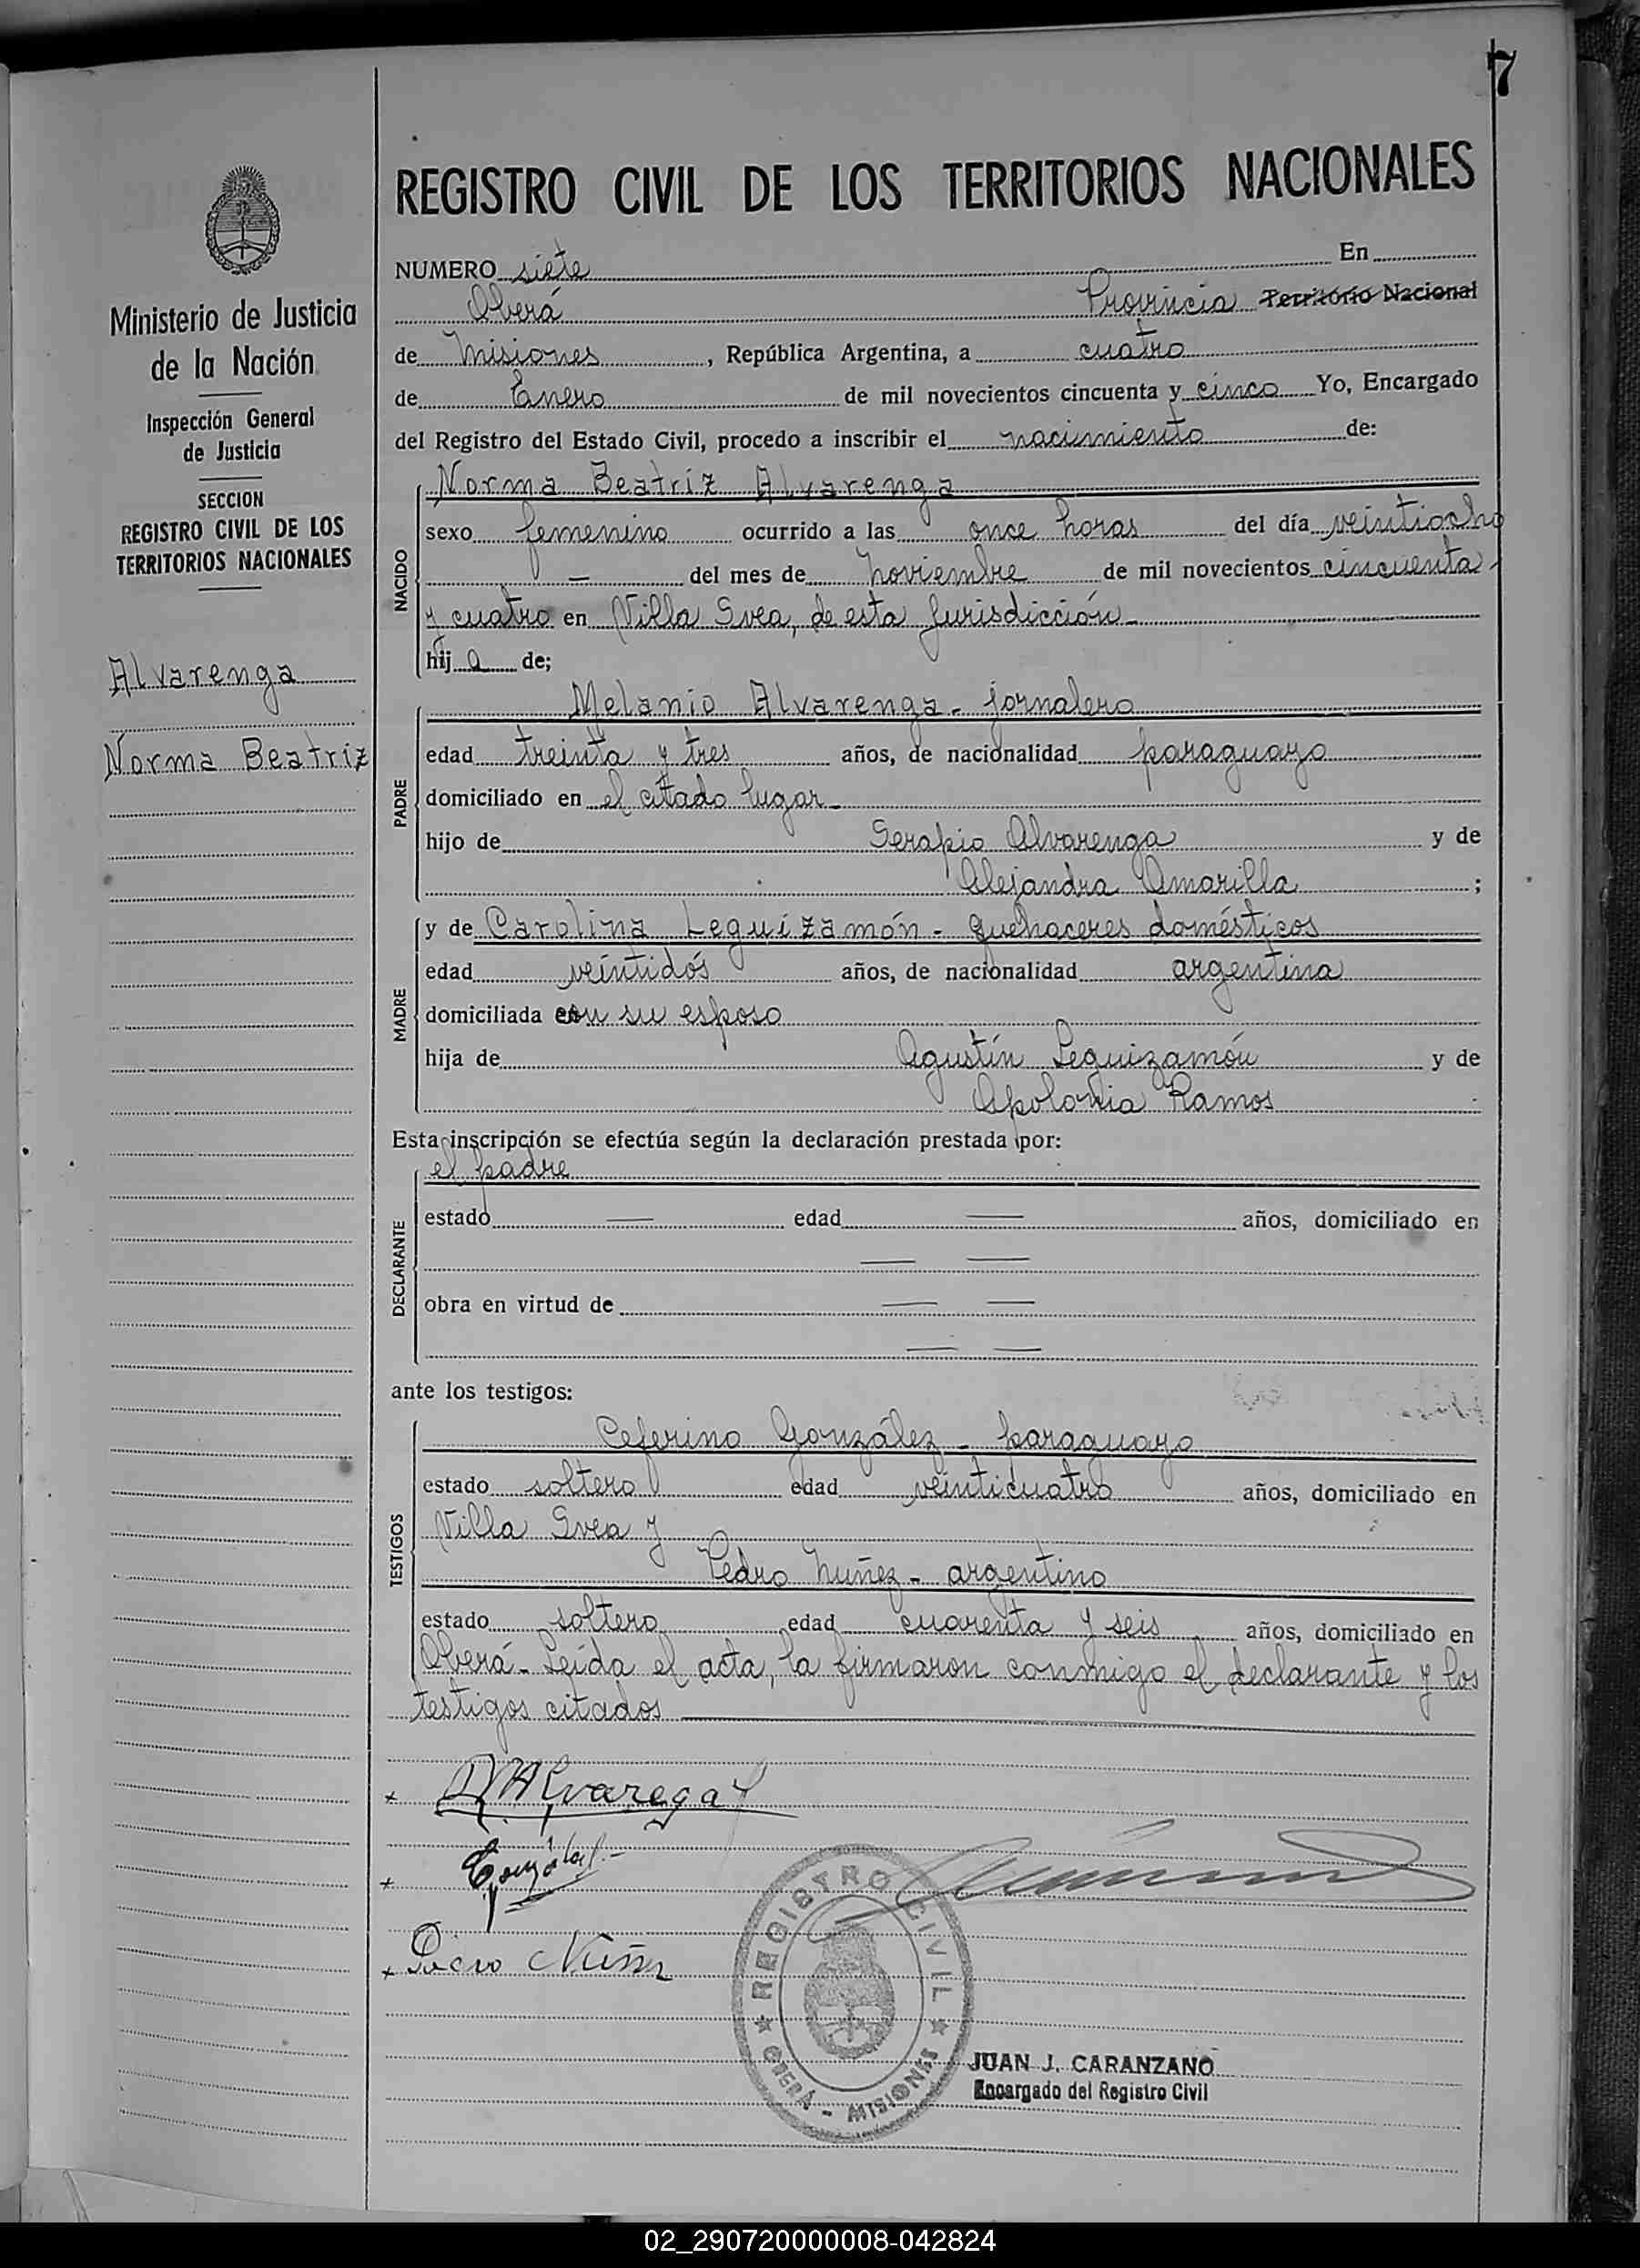 7
Ministerio de Justicia
de la Nación
Inspección General
de Justicia
SECCION
REGISTRO CIVIL DE LOS
TERRITORIOS NACIONALES
Alvarenga
Norma Beatriz
REGISTRO CIVIL DE LOS TERRITORIOS NACIONALES
NUMERO siete En
Oberá Provincia Territorio Nacional
de Misiones, República Argentina, a cuatro
de Enero de mil novecientos cincuenta y cinco Yo, Encargado
del Registro del Estado Civil, procedo a inscribir el nacimiento de:
NACIDO
Norma Beatriz Alvarenga
sexo femenino ocurrido a las once horas del día veintiocho
— del mes de Noviembre de mil novecientos cincuenta
y cuatro en Villa Svea, de esta Jurisdicción
hija de;
PADRE
Melanio Alvarenga - jornalero
edad treinta y tres años, de nacionalidad paraguayo
domiciliado en el citado lugar
hijo de Serapio Alvarenga y de
Alejandra Amarilla;
MADRE
y de Carolina Leguizamón - quehaceres domésticos
edad veintidós años, de nacionalidad argentina
domiciliada con su esposo
hija de Agustín Leguizamón y de
Apolonia Ramos
Esta inscripción se efectúa según la declaración prestada por:
DECLARANTE
el padre
estado — edad — años, domiciliado en
— —
obra en virtud de — —
— —
ante los testigos:
TESTIGOS
Ceferino González - paraguayo
estado soltero edad veinticuatro años, domiciliado en
Villa Svea y
Pedro Nuñez - argentino
estado soltero edad cuarenta y seis años, domiciliado en
Oberá - Leída el acta, la firmaron conmigo el declarante y los
testigos citados
Alvarega
REGISTRO CIVIL
OBERÁ - MISIONES
JUAN J. CARANZANO
Encargado del Registro Civil
02_290720000008-042824